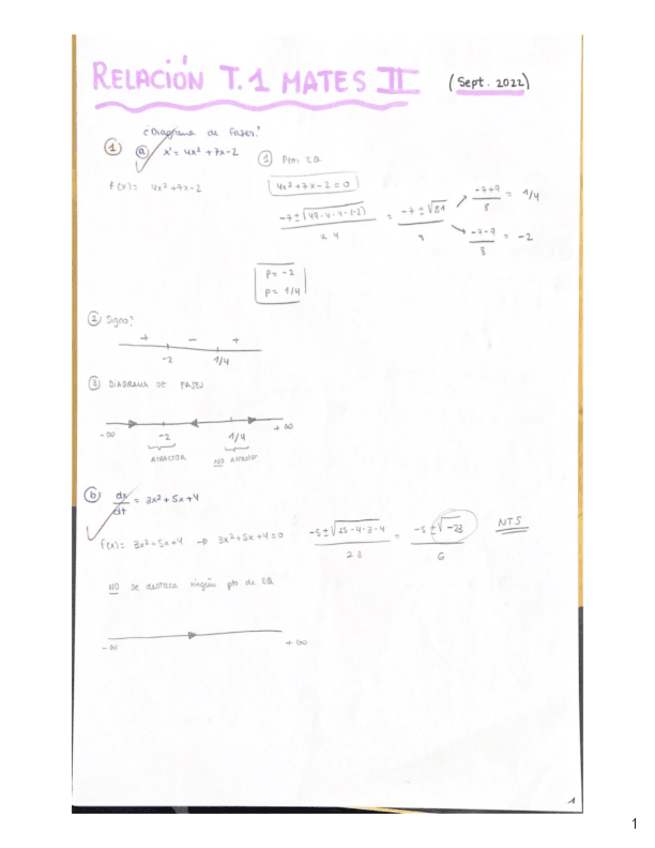 RELACIÓN T.1 MATES II (Sept. 2022)
¿Diagrama de fases?
① ⓐ x' = 4x² + 7x - 2
① Ptos. EQ
f(x) = 4x² + 7x - 2
4x² + 7x - 2 = 0
-7 ± √(49 - 4 · 4 · (-2)) / 2 · 4 = -7 ± √81 / 8
-7+9 / 8 = 1/4
-7-9 / 8 = -2
p = -2
p = 1/4
② Signo?
+ - +
-2 1/4
③ DIAGRAMA DE FASES
-∞ -2 1/4 +∞
ATRACTOR NO Atractor
ⓑ dx/dt = 3x² + 5x + 4
f(x) = 3x² + 5x + 4 → 3x² + 5x + 4 = 0
-5 ± √(25 - 4 · 3 · 4) / 2 · 3 = -5 ± √-23 / 6
NTS
NO se destaca ningún pto de EQ
-∞ +∞
1
1